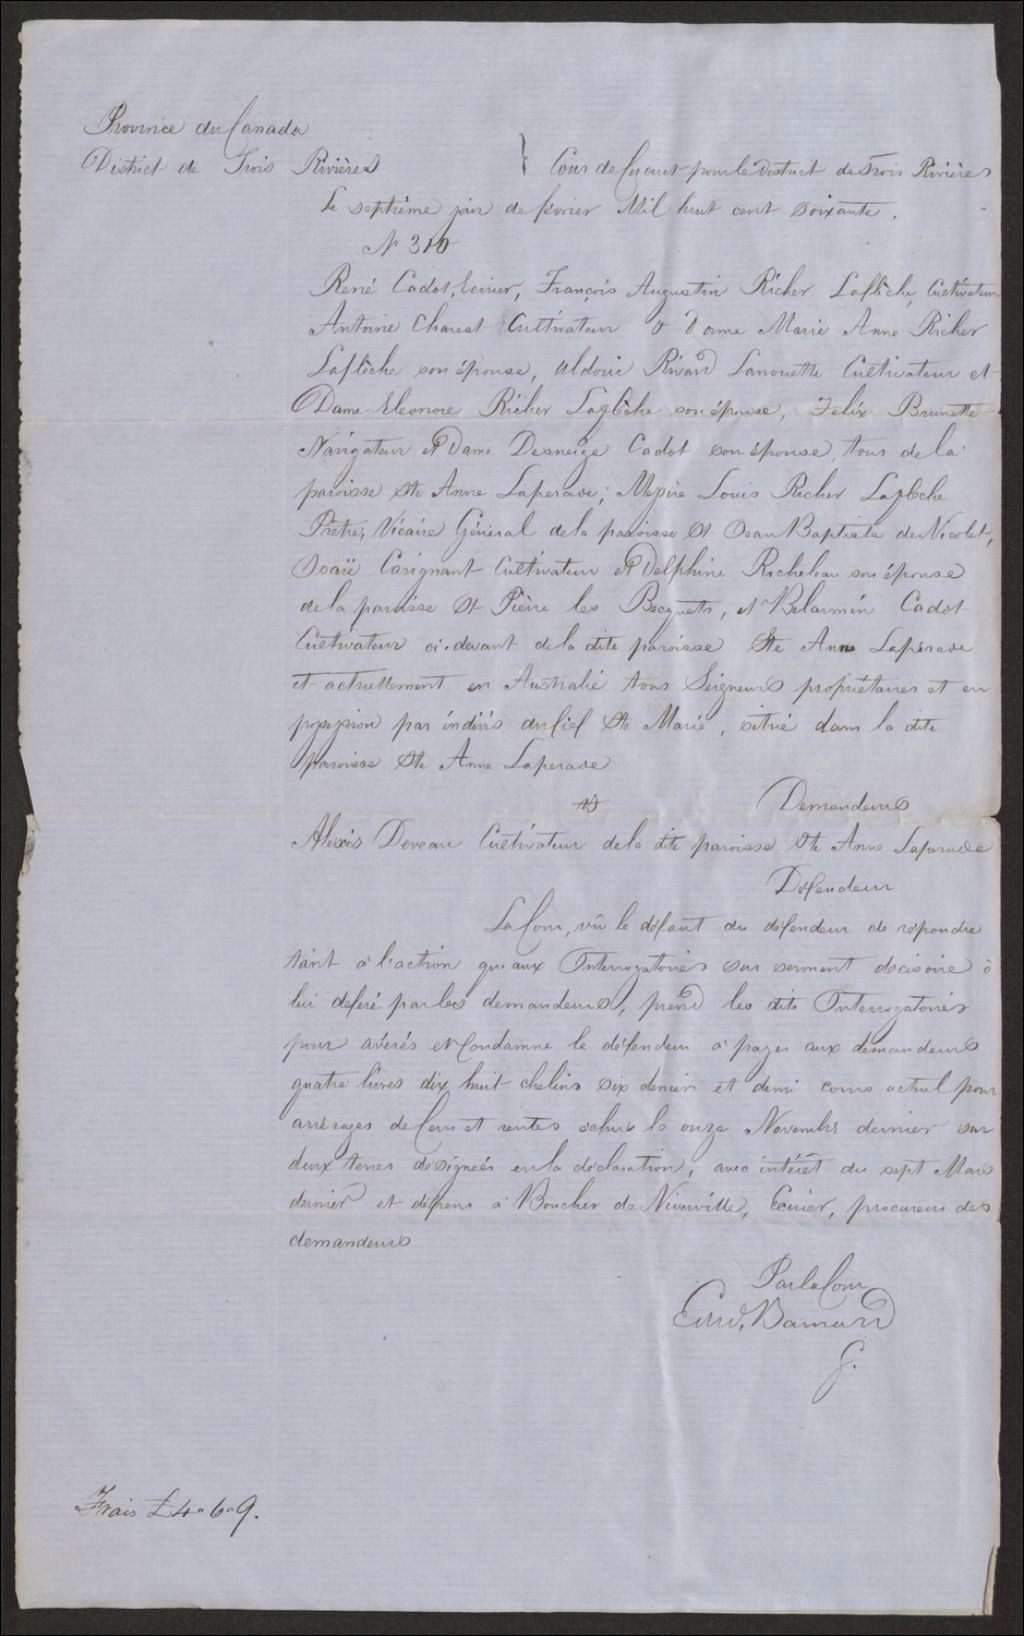 Province du Canada
District de Trois Rivières } Cour de Circuit pour le District de Trois Rivières
Le septième jour de février Mil huit cent soixante.
N° 310
René Cadot, Ecuier, François Augustin Richer Laflèche, Cultivateur
Antoine Charest Cultivateur & Dame Marie Anne Richer
Laflèche son épouse, Aldoric Rivard Lanouette Cultivateur et
Dame Eleonore Richer Laflèche son épouse, Felix Brunette
Navigateur et Dame Desneige Cadot son épouse, tous de la
paroisse Ste Anne Laperade; Messire Louis Richer Laflèche
Prêtre, Vicaire Général de la paroisse St Jean Baptiste de Nicolet,
Carignant Cultivateur et Delphine Richeleau son épouse
de la paroisse St Pierre les Becquets, et Belarmin Cadot
Cultivateur ci-devant de la dite paroisse Ste Anne Laperade
et actuellement en Australie tous Seigneurs propriétaires et en
possession par indivis du fief Ste Marie, situé dans la dite
paroisse Ste Anne Laperade
Demandeurs
vs
Alexis Deveau Cultivateur de la dite paroisse Ste Anne Laperade
Défendeur
La Cour, vû le défaut du défendeur de répondre
tant à l'action qu'aux Interrogatoires sur serment décisoire à
lui déféré par les demandeurs, prend les dits Interrogatoires
pour avérés et Condamne le défendeur à payer aux demandeurs
quatre livres dix huit chelins six denier et demi cours actuel pour
arrérages de Cens et rentes échus le onze Novembre dernier sur
deux terres désignées en la déclaration, avec intérêt du sept Mars
dernier et dépens à Boucher de Niverville, Ecuier, procureur des
demandeurs
Par la Cour
Edwd. Barnard
G.
Frais £4"6"9.